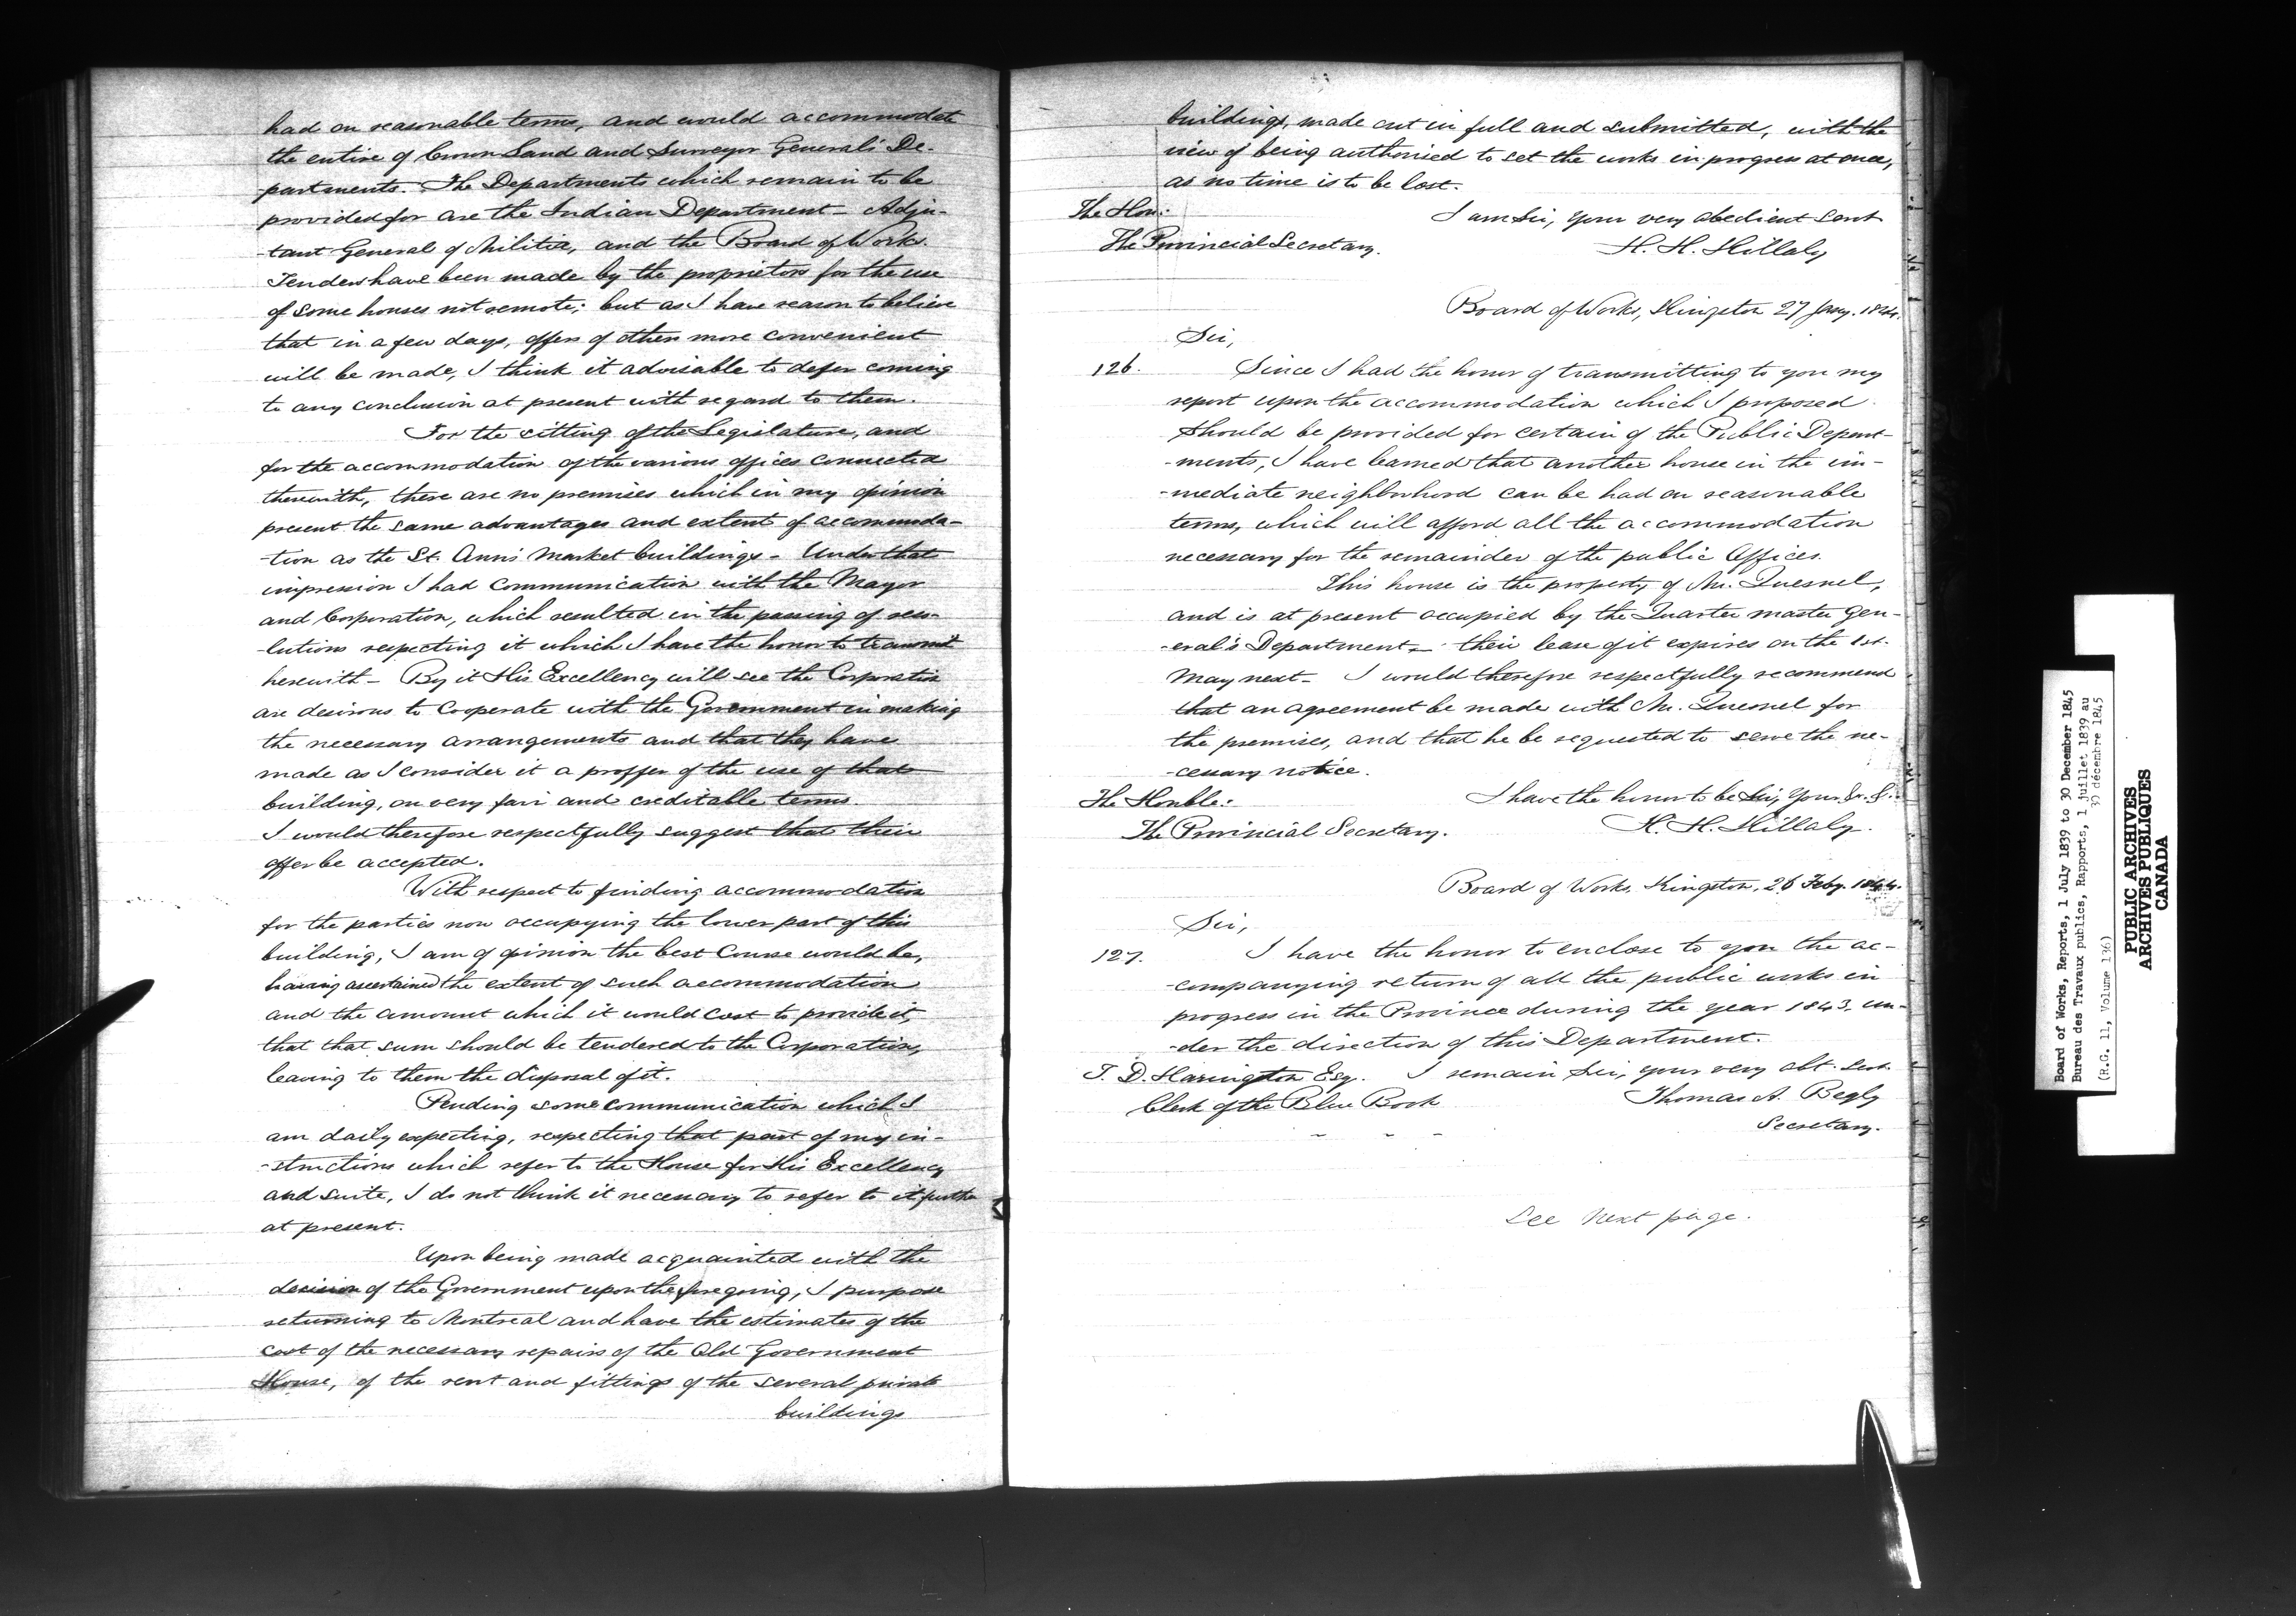 had on reasonable terms, and would accommodate
the entire of Crown Land and Surveyor General's De-
partments. The Departments which remain to be
provided for are the Indian Department - Adju-
-tant General of Militia, and the Board of Works.
Tenders have been made by the proprietors for the use
of some houses not remote; but as I have reason to believe
that in a few days, offers of others more convenient
will be made, I think it advisable to defer coming
to any conclusion at present with regard to them.
For the sitting of the Legislature, and
for the accommodation of the various offices connected
therewith, there are no premises which in my opinion
present the same advantages and extent of accommoda-
-tion as the St. Ann's Market buildings - Under that
impression I had communication with the Mayor
and Corporation, which resulted in the passing of reso-
-lutions respecting it which I have the honor to transmit
herewith - By it His Excellency will see the Corporation
are desirous to Cooperate with the Government in making
the necessary arrangements and that they have
made as I consider it a proffer of the use of that
building, on very fair and creditable terms.
I would therefore respectfully suggest that their
offer be accepted.
With respect to finding accommodation
for the parties now occupying the lower part of this
building, I am of opinion the best Course would be,
having ascertained the extent of such accommodation
and the amount which it would cost to provide it,
that that sum should be tendered to the Corporation,
leaving to them the disposal of it.
Pending some communication which I
am daily expecting, respecting that part of my in-
-structions which refer to the House for His Excellency
and suite, I do not think it necessary to refer to it further
at present.
Upon being made acquainted with the
decision of the Government upon the foregoing, I purpose
returning to Montreal and have the estimates of the
cost of the necessary repairs of the Old Government
House, of the rent and fittings of the several private
buildings
buildings, made out in full and submitted, with the
view of being authorised to set the works in progress at once,
as no time is to be lost.
The Hon: I am Sir, your very obedient Sert
The Provincial Secretary. H. H. Killaly
Board of Works, Kingston 27 Jany. 1844.
Sir,
126. Since I had the honor of transmitting to you my
report upon the accommodation which I proposed
should be provided for certain of the Public Depart-
-ments, I have learned that another house in the im-
-mediate neighborhood can be had on reasonable
terms, which will afford all the accommodation
necessary for the remainder of the public Offices.
This house is the property of Mr. Quesnel,
and is at present occupied by the Quarter master Gen-
-eral's Department - their lease of it expires on the 1st.
May next - I would therefore respectfully recommend
that an agreement be made with Mr. Quesnel for
the premises, and that he be requested to serve the ne-
-cessary notice.
The Honble: I have the honor to be Sir, Your &c. &.
The Provincial Secretary. H. H. Killaly.
Board of Works, Kingston, 26 Feby. 1844.
Sir,
127. I have the honor to enclose to you the ac-
-companying return of all the public works in
progress in the Province during the year 1843, un-
-der the direction of this Department.
T. D. Harington Esq. I remain Sir, your very obt. Sert.
Clerk of the Blue Book Thomas A. Begly
Secretary.
See Next page.
Board of Works, Reports, 1 July 1839 to 30 December 1845
Bureau des Travaux publics, Rapports, 1 juillet 1839 au
30 décembre 1845
(R.G. 11, Volume 136)
PUBLIC ARCHIVES
ARCHIVES PUBLIQUES
CANADA